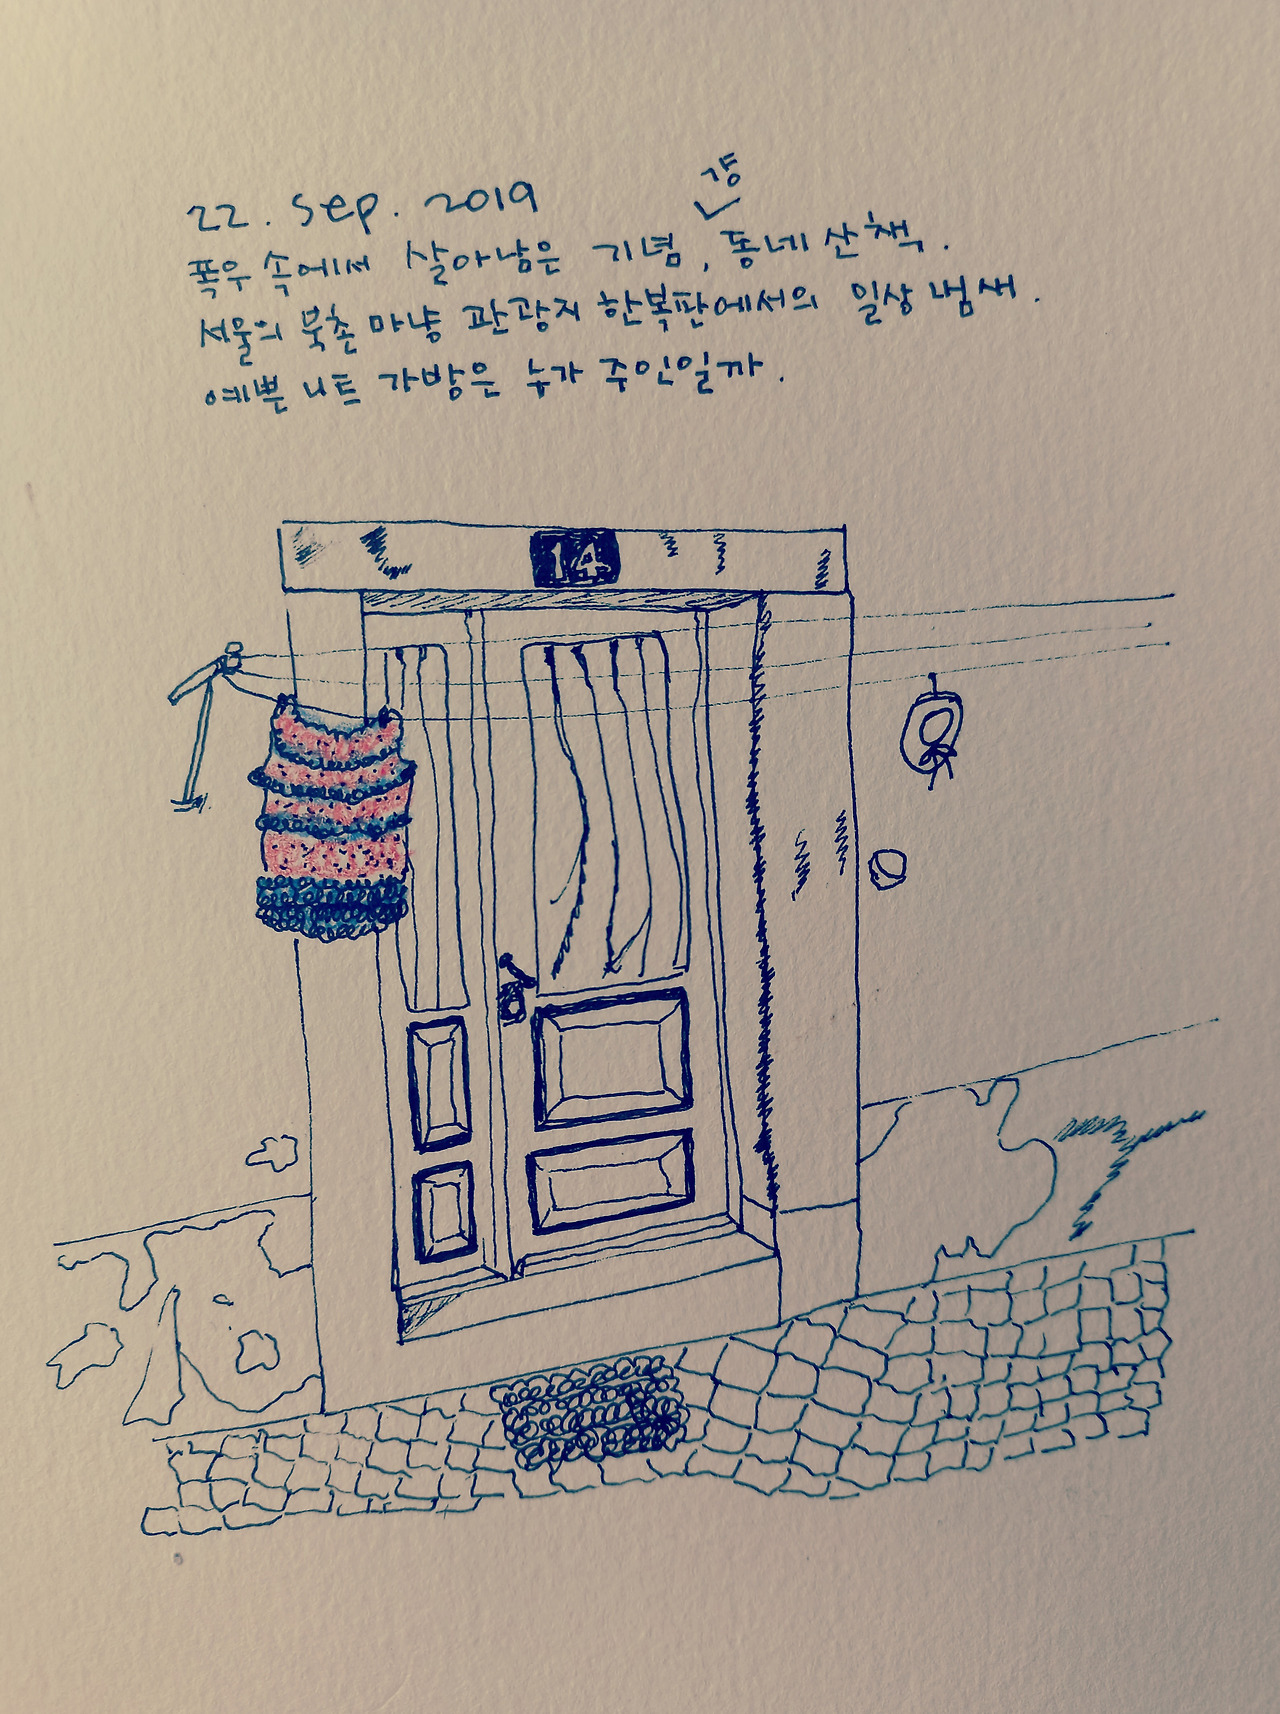 22. Sep. 2019
걍
폭우 속에서 살아남은 기념, 동네 산책.
서울의 북촌 마냥 관광지 한복판에서의 일상 냄새.
예쁜 니트 가방은 누가 주인일까.
14